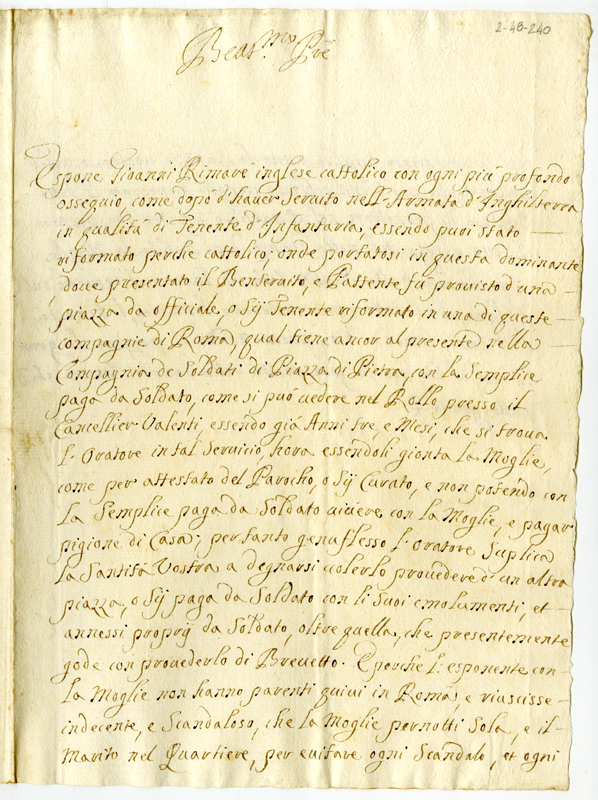 2-48-240
Beat.mo Pre
Espone Gioanni Rimare inglese cattolico con ogni più profondo
ossequio, come dopò d'hauer Seruito nell'Armata d'Inghilterra
in qualità di Tenente d'Infantaria, essendo puoi stato
riformato perche cattolico; onde portatosi in questa dominante
doue presentato il Benseruito, e Pattente fù prouisto d'una
piazza da officiale, o Sij Tenente riformato in una di queste
compagnie di Roma, qual tiene ancor al presente nella
Compagnia de Soldati di Piazza di Pietra, con la Semplice
paga da Soldato, come si può uedere nel Rollo presso il
Cancellier Valenti, essendo già Anni tre, e Mesi, che si troua
l'Oratore in tal Seruicio, hora essendoli gionta la Moglie,
come per attestato del Parocho, o Sij Curato, e non potendo con
la Semplice paga da Soldato uiuere con la Moglie, e pagar
pigione di Casa; per tanto genuflesso l'Oratore Suplica
la Santità Vostra a degnarsi uolerlo prouedere d'un altra
piazza, o Sij paga da Soldato con li Suoi emolumenti, et
annessi proprij da Soldato, oltre quella, che presentemente
gode con prouederlo di Breuetto. E perche l'esponente con
la Moglie non hanno parenti quiui in Roma, e riuscisse
indecente, e Scandaloso, che la Moglie pernotti Sola, e il
Marito nel Quartiere, per euitare ogni Scandalo, et ogni